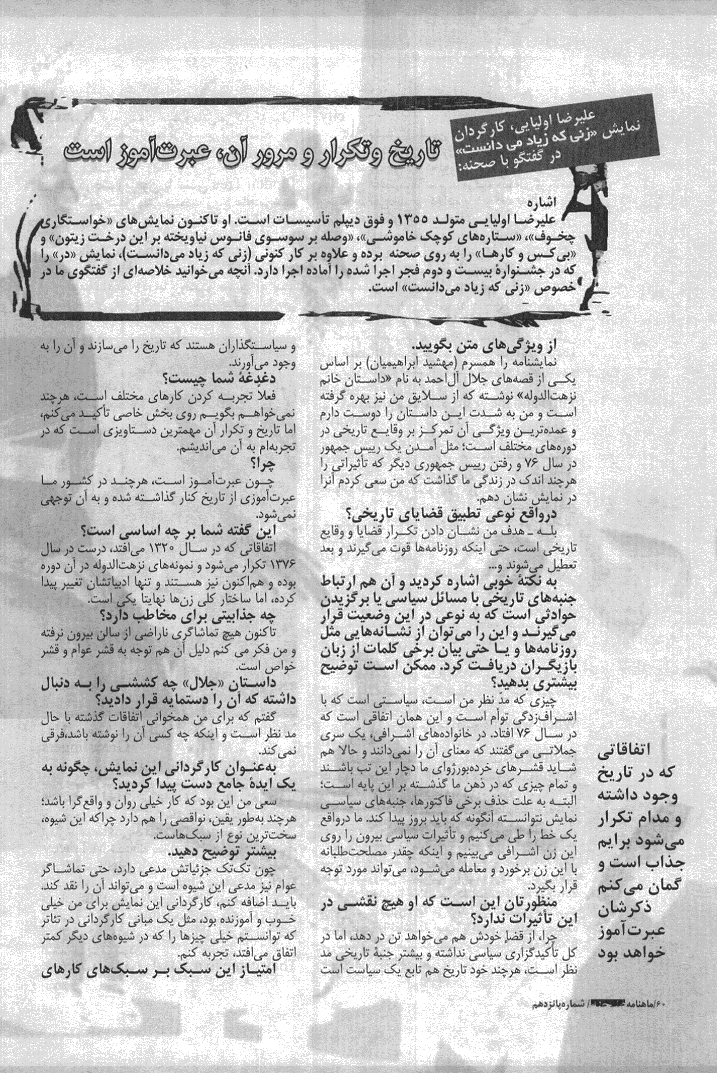 علیرضا اولیایی، کارگردان
نمایش «زنی که زیاد می دانست»
در گفتگو با صحنه:
تاریخ وتکرار و مرور آن، عبرت‌آموز است
اشاره
علیرضا اولیایی متولد ۱۳۵۵ و فوق دیپلم تأسیسات است. او تاکنون نمایش‌های «خواستگاری
چخوف»، «ستاره‌های کوچک خاموشی»، «وصله بر سوسوی فانوس نیاویخته بر این درخت زیتون» و
«بی‌کس و کارها» را به روی صحنه برده و علاوه بر کار کنونی (زنی که زیاد می‌دانست)، نمایش «در» را
که در جشنوارهٔ بیست و دوم فجر اجرا شده را آماده اجرا دارد. آنچه می‌خوانید خلاصه‌ای از گفتگوی ما در
خصوص «زنی که زیاد می‌دانست» است.
از ویژگی‌های متن بگویید.
نمایشنامه را همسرم (مهشید ابراهیمیان) بر اساس
یکی از قصه‌های جلال آل‌احمد به نام «داستان خانم
نزهت‌الدوله» نوشته که از سلایق من نیز بهره گرفته
است و من به شدت این داستان را دوست دارم
و عمده‌ترین ویژگی آن تمرکز بر وقایع تاریخی در
دوره‌های مختلف است؛ مثل آمدن یک رییس جمهور
در سال ۷۶ و رفتن رییس جمهوری دیگر که تأثیراتی را
هرچند اندک در زندگی ما گذاشت که من سعی کردم آنرا
در نمایش نشان دهم.
درواقع نوعی تطبیق قضایای تاریخی؟
بله ـ هدف من نشان دادن تکرار قضایا و وقایع
تاریخی است، حتی اینکه روزنامه‌ها قوت می‌گیرند و بعد
تعطیل می‌شوند و...
به نکتهٔ خوبی اشاره کردید و آن هم ارتباط
جنبه‌های تاریخی با مسائل سیاسی یا برگزیدن
حوادثی است که به نوعی در این وضعیت قرار
می‌گیرند و این را می‌توان از نشانه‌هایی مثل
روزنامه‌ها و یا حتی بیان برخی کلمات از زبان
بازیگران دریافت کرد. ممکن است توضیح
بیشتری بدهید؟
چیزی که مدّ نظر من است، سیاستی است که با
اشراف‌زدگی توأم است و این همان اتفاقی است که
در سال ۷۶ افتاد، در خانواده‌های اشرافی، یک سری
جملاتی می‌گفتند که معنای آن را نمی‌دانند و حالا هم
شاید قشرهای خرده‌بورژوای ما دچار این تب باشند
و تمام چیزی که در ذهن ما گذشته بر این پایه است؛
البته به علت حذف برخی فاکتورها، جنبه‌های سیاسی
نمایش نتوانسته آنگونه که باید بروز پیدا کند. ما درواقع
یک خط را طی می‌کنیم و تأثیرات سیاسی بیرون را روی
این زن اشرافی می‌بینیم و اینکه چقدر مصلحت‌طلبانه
با این زن برخورد و معامله می‌شود، می‌تواند مورد توجه
قرار بگیرد.
منظورتان این است که او هیچ نقشی در
این تأثیرات ندارد؟
چرا، از قضا خودش هم می‌خواهد تن در دهد، اما در
کل تأکیدگزاری سیاسی نداشته و بیشتر جنبهٔ تاریخی مد
نظر است، هرچند خود تاریخ هم تابع یک سیاست است
و سیاستگذاران هستند که تاریخ را می‌سازند و آن را به
وجود می‌آورند.
دغدغهٔ شما چیست؟
فعلا تجربه کردن کارهای مختلف است، هرچند
نمی‌خواهم بگویم روی بخش خاصی تأکید می‌کنم،
اما تاریخ و تکرار آن مهمترین دستاویزی است که در
تجربه‌ام به آن می‌اندیشم.
چرا؟
چون عبرت‌آموز است، هرچند در کشور ما
عبرت‌آموزی از تاریخ کنار گذاشته شده و به آن توجهی
نمی‌شود.
این گفته شما بر چه اساسی است؟
اتفاقاتی که در سال ۱۳۲۰ می‌افتد، درست در سال
۱۳۷۶ تکرار می‌شود و نمونه‌های نزهت‌الدوله در آن دوره
بوده و هم‌اکنون نیز هستند و تنها ادبیاتشان تغییر پیدا
کرده، اما ساختار کلی زن‌ها نهایتا یکی است.
چه جذابیتی برای مخاطب دارد؟
تاکنون هیچ تماشاگری ناراضی از سالن بیرون نرفته
و من فکر می کنم دلیل آن هم توجه به قشر عوام و قشر
خواص است.
داستان «جلال» چه کششی را به دنبال
داشته که آن را دستمایه قرار دادید؟
گفتم که برای من همخوانی اتفاقات گذشته با حال
مد نظر است و اینکه چه کسی آن را نوشته باشد،فرقی
نمی‌کند.
به‌عنوان کارگردانی این نمایش، چگونه به
یک ایدهٔ جامع دست پیدا کردید؟
سعی من این بود که کار خیلی روان و واقع‌گرا باشد؛
هرچند به‌طور یقین، نواقصی را هم دارد چراکه این شیوه،
سخت‌ترین نوع از سبک‌هاست.
بیشتر توضیح دهید.
چون تک‌تک جزئیاتش مدعی دارد، حتی تماشاگر
عوام نیز مدعی این شیوه است و می‌تواند آن را نقد کند،
باید اضافه کنم، کارگردانی این نمایش برای من خیلی
خوب و آموزنده بود، مثل یک مبانی کارگردانی در تئاتر
که توانستم خیلی چیزها را که در شیوه‌های دیگر کمتر
اتفاق می‌افتد، تجربه کنم.
امتیاز این سبک بر سبک‌های کارهای
اتفاقاتی
که در تاریخ
وجود داشته
و مدام تکرار
می‌شود برایم
جذاب است و
گمان می‌کنم
ذکرشان
عبرت‌آموز
خواهد بود
۶۰/ماهنامه / شماره پانزدهم